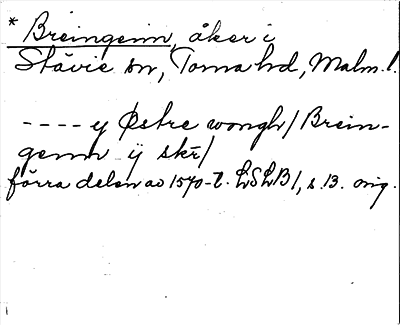 * Breingenn, åker i
Stävie sn, Torna hd, Malm. l.
---- y Østre wongh / Brein-
genn ÿ skr /
förra delen av 1570-t. LSLB1, s. 13. orig.